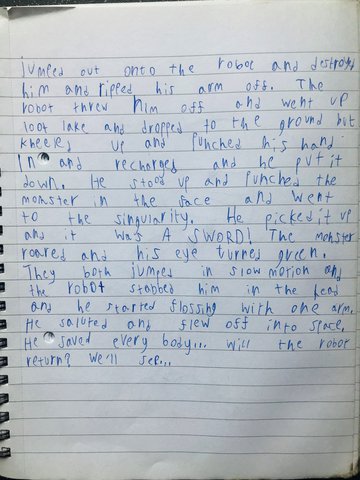 jumped out onto the robot and destroyed
him and ripped his arm off. The
robot threw him off and went up
loot lake and dropped to the ground but
kneeled up and punched his hand
in and recharged and he put it
down. He stood up and punched the
monster in the face and went
to the singularity. He picked it up
and it was A SWORD! The monster
roared and his eye turned green.
They both jumped in slow motion and
the robot stabbed him in the head
and he started flossing with one arm.
He saluted and flew off into space.
He saved every body... will the robot
return? We'll see...